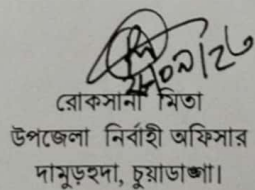 রোকসানা মিতা
উপজেলা নির্বাহী অফিসার
দামুড়হুদা, চুয়াডাঙ্গা।